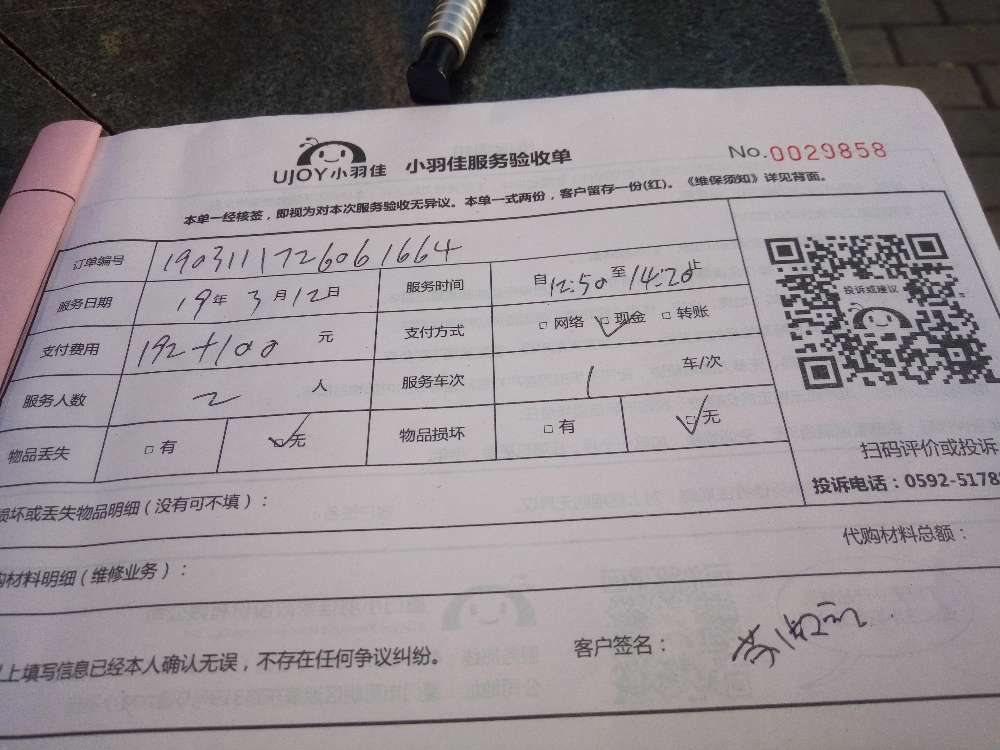 UJOY小羽佳 小羽佳服务验收单 No.0029858
本单一经核签，即视为对本次服务验收无异议。本单一式两份，客户留存一份(红)。《维保须知》详见背面。
订单编号 1903111726061664
服务日期 19年3月12日 服务时间 自12:50至14:20止
支付费用 192+100 元 支付方式 □网络 □现金 □转账
服务人数 2 人 服务车次 1 车/次
物品丢失 □有 □无 物品损坏 □有 □无
投诉或建议
扫码评价或投诉
投诉电话：0592-5178
损坏或丢失物品明细（没有可不填）：
购材料明细（维修业务）： 代购材料总额：
上填写信息已经本人确认无误，不存在任何争议纠纷。 客户签名：